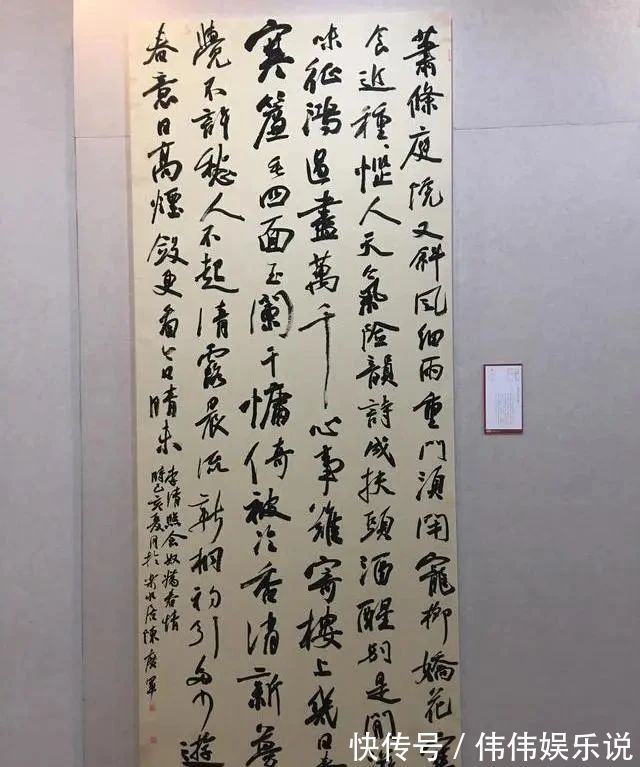 蕭條庭院又斜風細雨重門須閉寵柳嬌花寒
食近種々惱人天氣險韻詩成扶頭酒醒別是閒滋
味征鴻過盡萬千心事難寄樓上幾日春
寒簾垂四面玉闌干慵倚被冷香消新夢
覺不許愁人不起清露晨流新桐初引多少遊
春意日高煙斂更看今日晴未
李清照念奴嬌春情
時己亥夏月於居陳軍
快传号 / 伟伟娱乐说